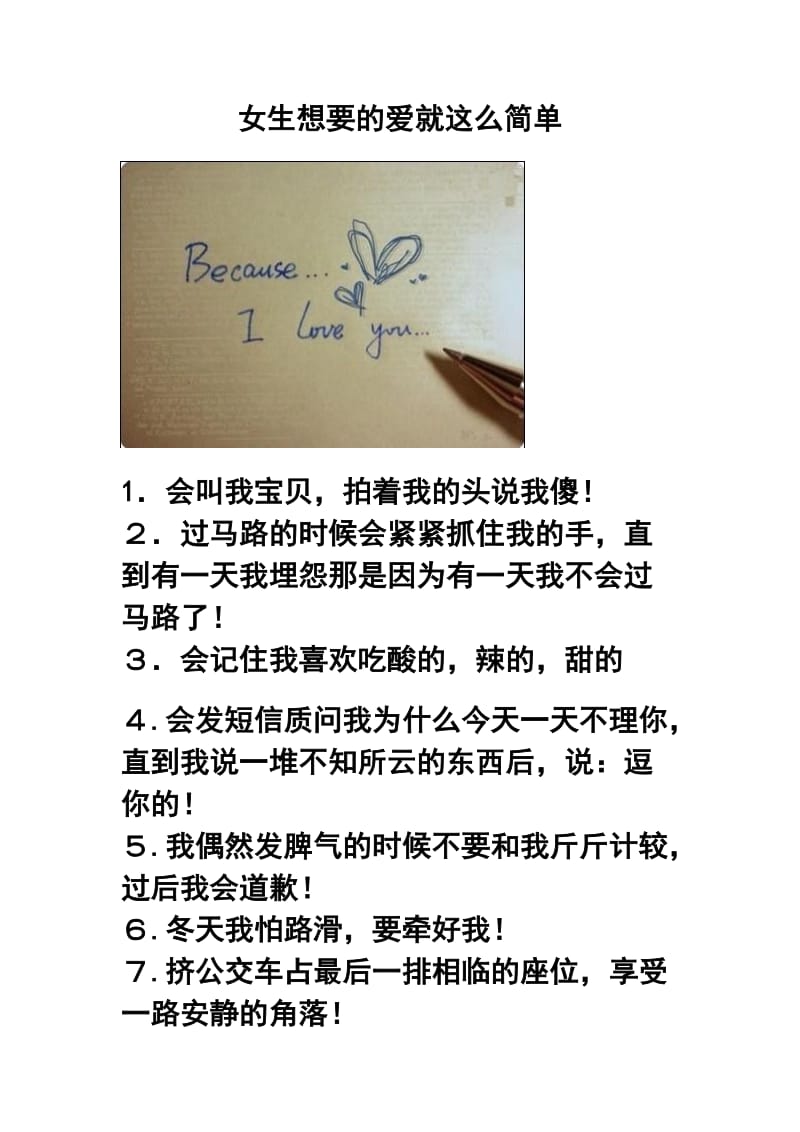 女生想要的爱就这么简单
Because...
I love you...
1．会叫我宝贝，拍着我的头说我傻！
２．过马路的时候会紧紧抓住我的手，直
到有一天我埋怨那是因为有一天我不会过
马路了！
３．会记住我喜欢吃酸的，辣的，甜的
４.会发短信质问我为什么今天一天不理你，
直到我说一堆不知所云的东西后，说：逗
你的！
５.我偶然发脾气的时候不要和我斤斤计较，
过后我会道歉！
６.冬天我怕路滑，要牵好我！
７.挤公交车占最后一排相临的座位，享受
一路安静的角落！